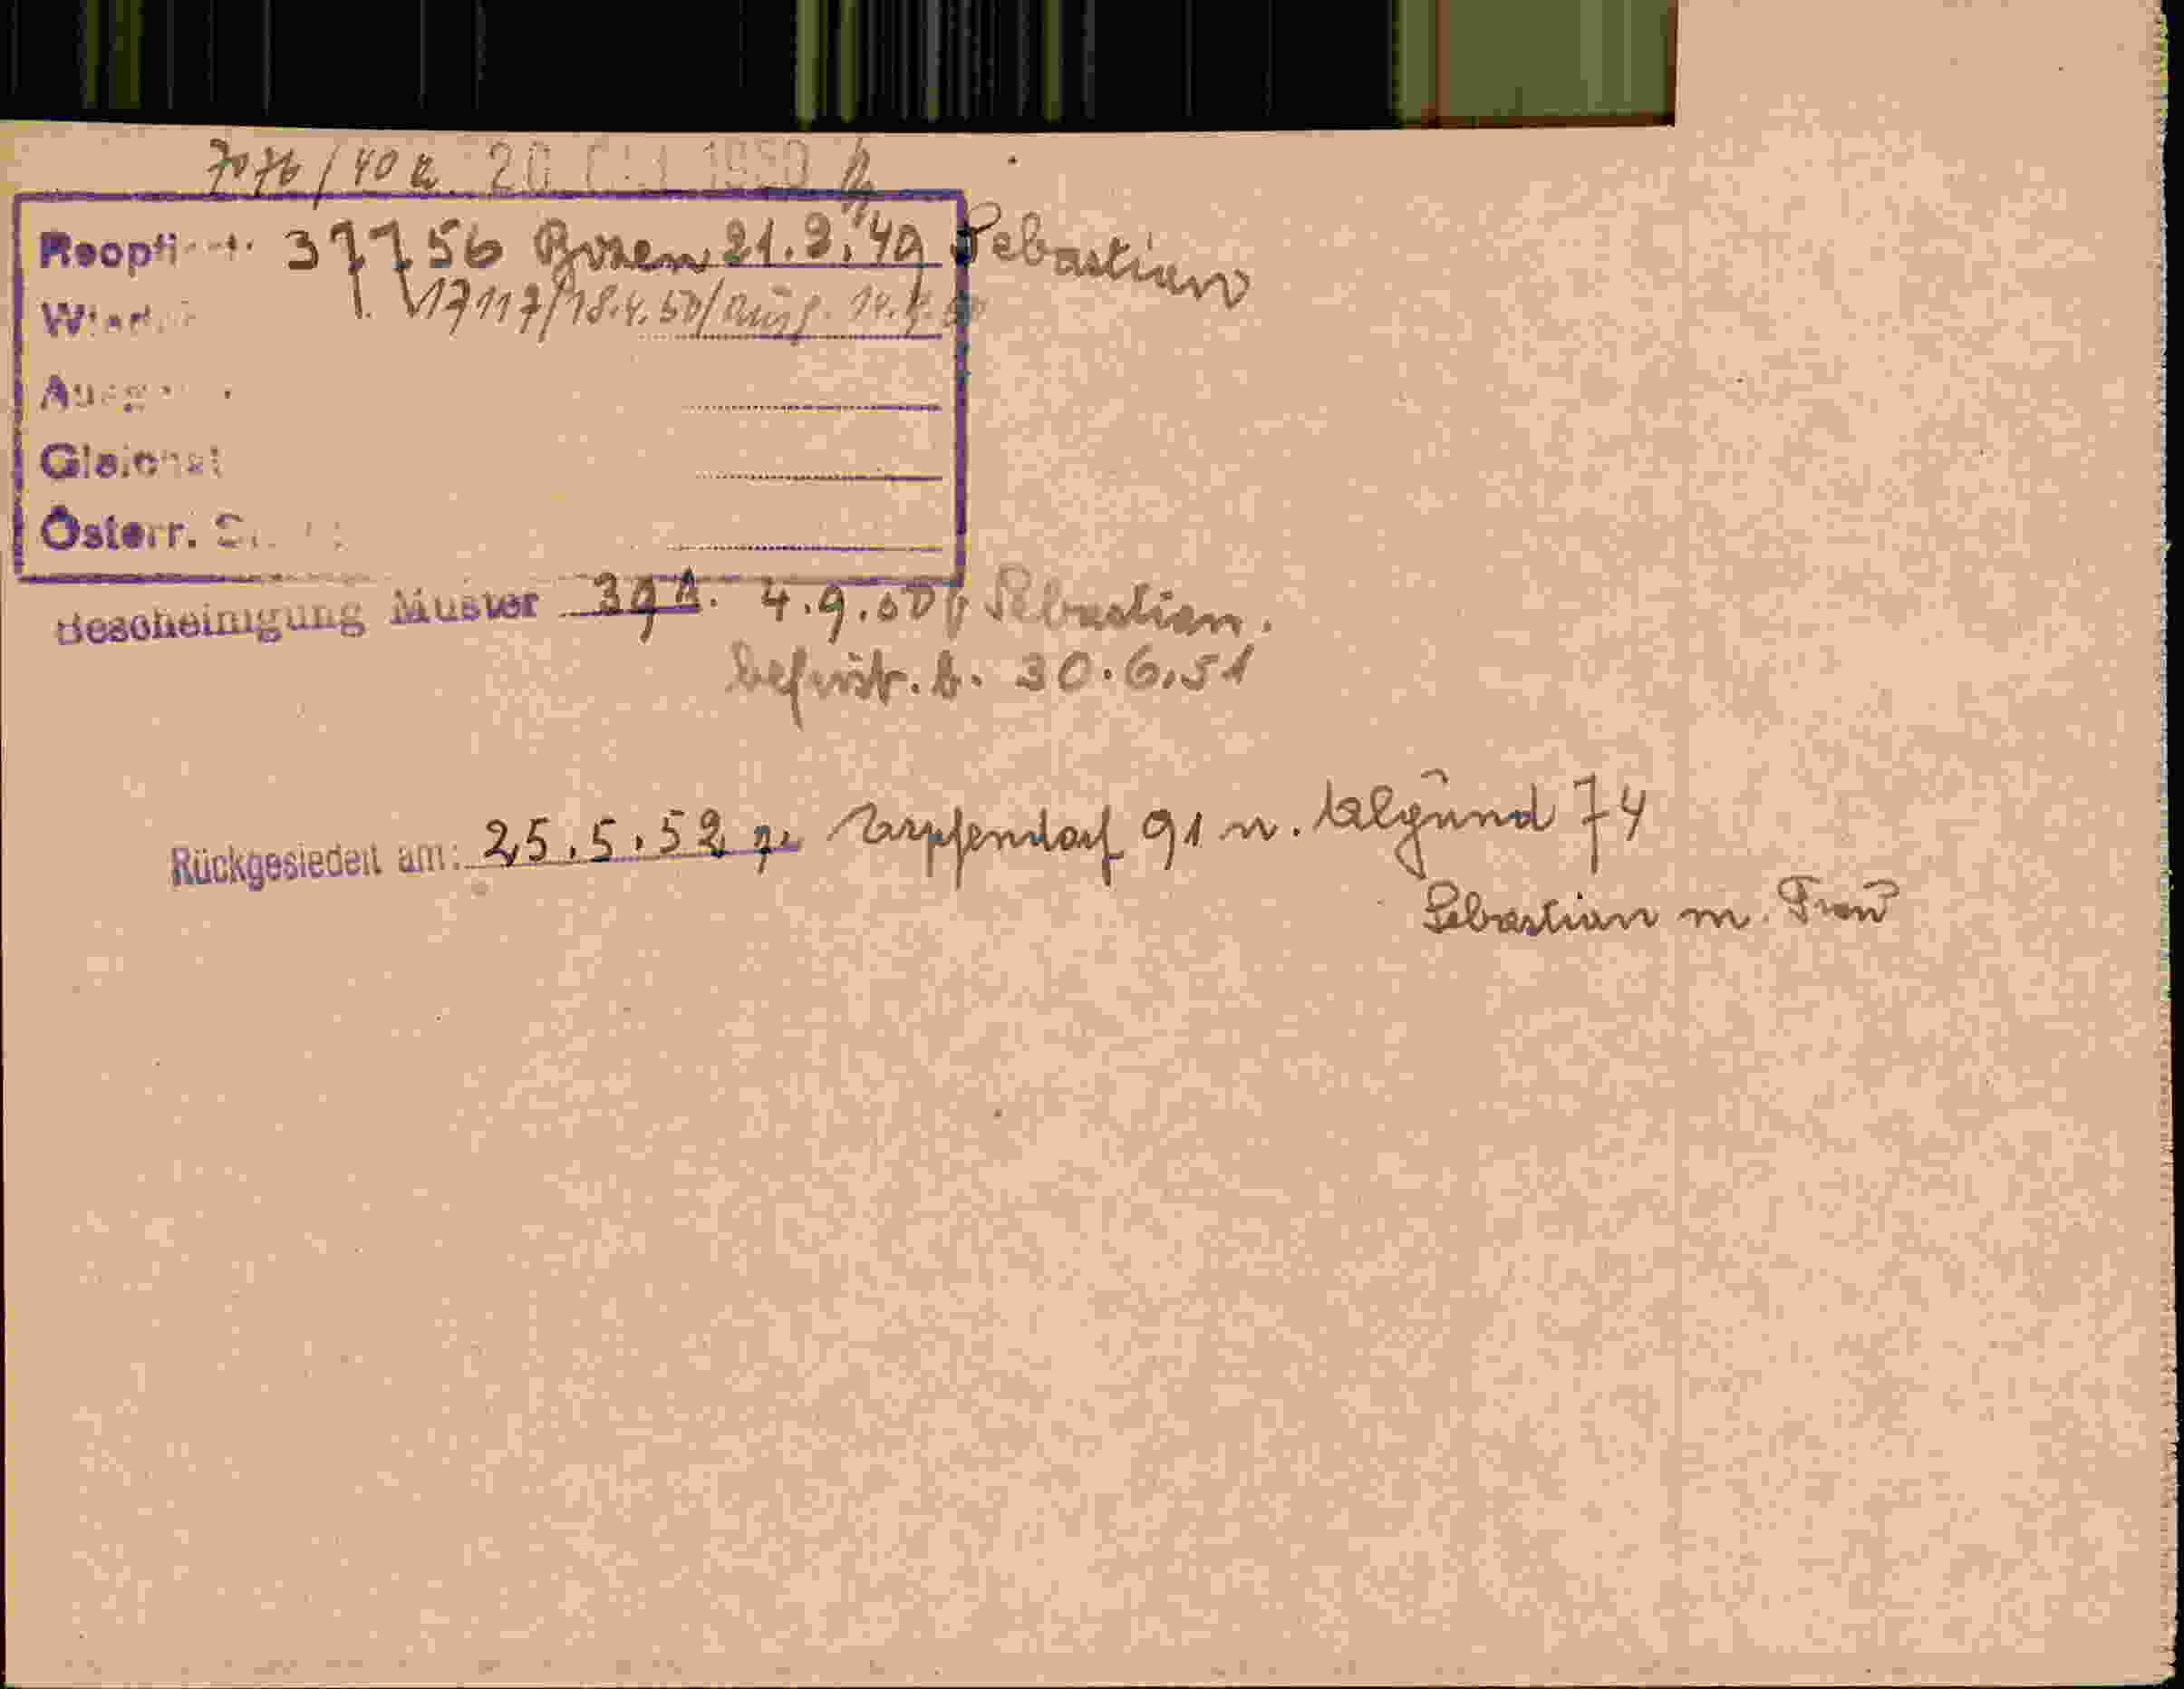 7076/40 20 1950
Reopti 37756 Bozen 21.3.49 Sebastian
17117/18.4.50/
Ausg
Gleichst
Österr.
Bescheinigung Muster 39A. 4.9.50 Sebastian.
befrist. b. 30.6.51
Rückgesiedelt am: 25.5.52 91 n. Algund 74
Sebastian m. Frau